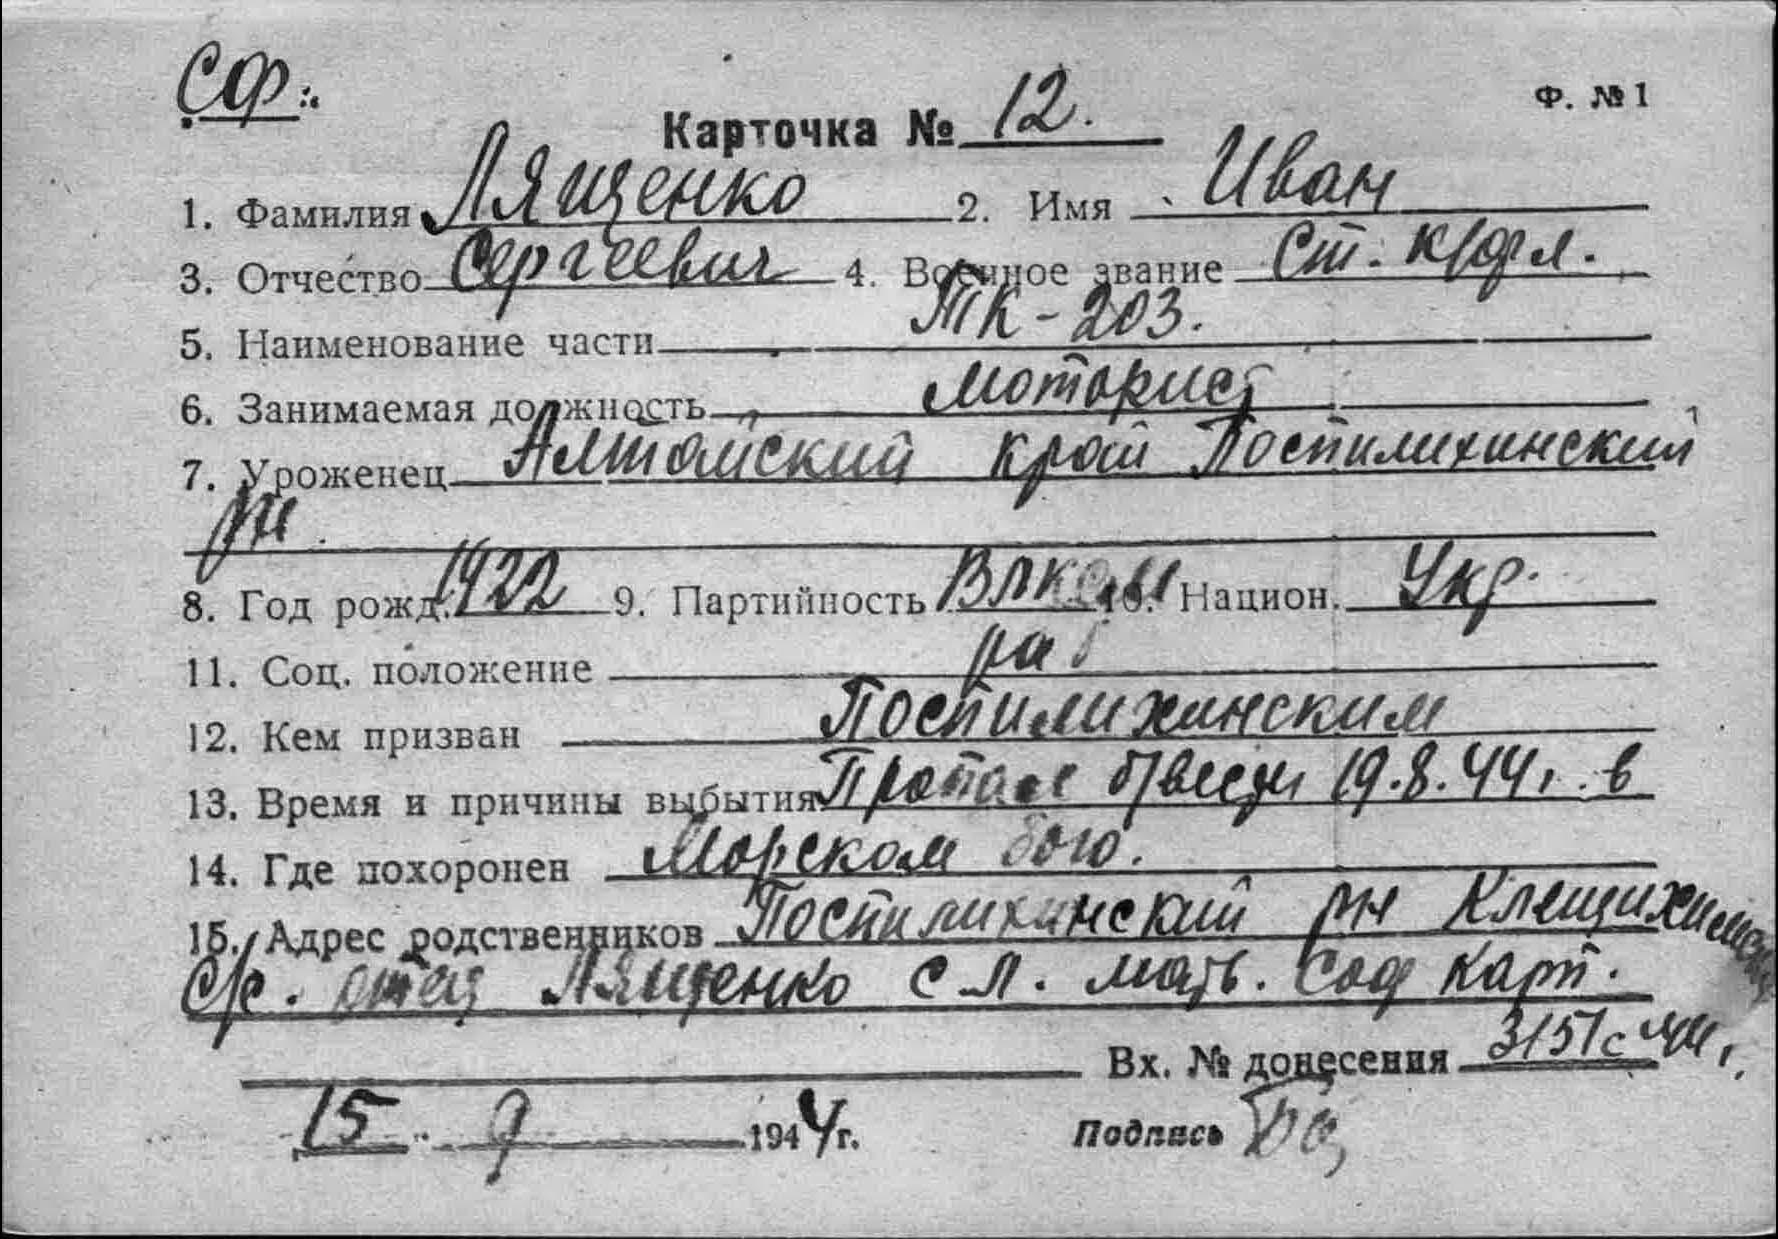 СФ.
Ф. № 1
Карточка № 12.
1. Фамилия Лященко 2. Имя Иван
3. Отчество Сергеевич 4. Военное звание Ст. к/фл.
5. Наименование части ТК-203.
6. Занимаемая должность моторист
7. Уроженец Алтайский край Поспилихинский
рн.
8. Год рожд. 1922 9. Партийность ВЛКСМ 10. Национ. Укр.
11. Соц. положение раб
12. Кем призван Поспилихинским
13. Время и причины выбытия Пропал б/вести 19.8.44г. в
14. Где похоронен Морском бою.
15. Адрес родственников Поспилихинский рн
с/с. отец Лященко С Л. мать.
Вх. № донесения 3151с
15 9 1944г. Подпись